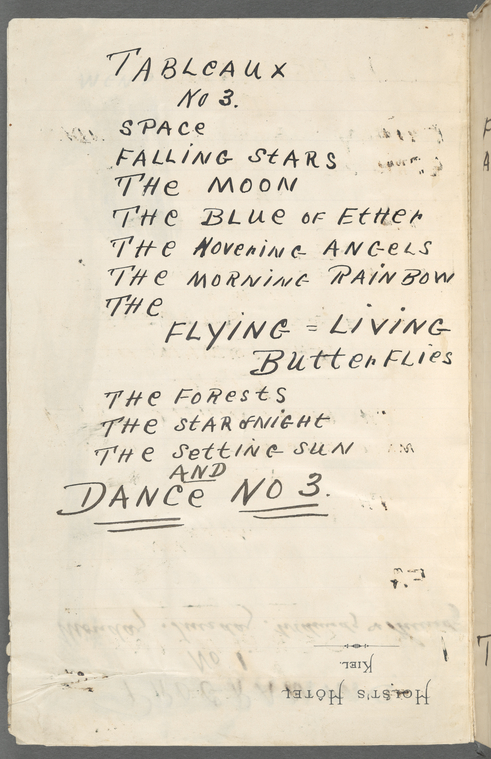 TABLEAUX
NO 3.
SPACE
FALLING STARS
THE MOON
THE BLUE OF ETHER
THE HOVERING ANGELS
THE MORNING RAINBOW
THE
FLYING = LIVING
BUTTERFLIES
THE FORESTS
THE STAR OF NIGHT
THE SETTING SUN
AND
DANCE NO 3.
KIEL.
HOLST'S HÔTEL